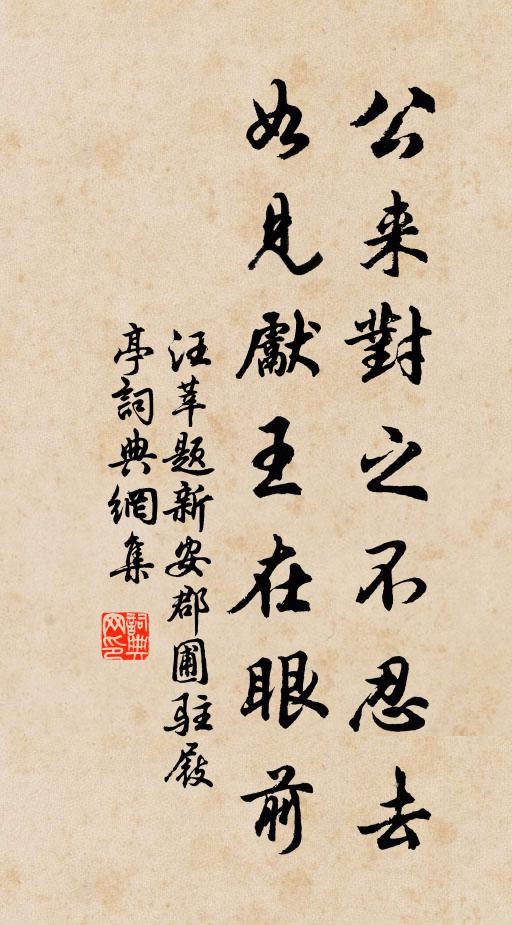 公来對之不忍去
如見獻王在眼前
汪莘题新安郡圃駐屐
亭詞典網集
詞典
网印